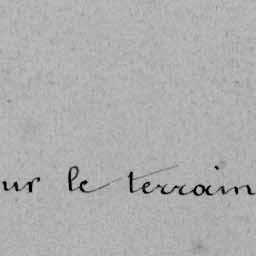 ur le terrain